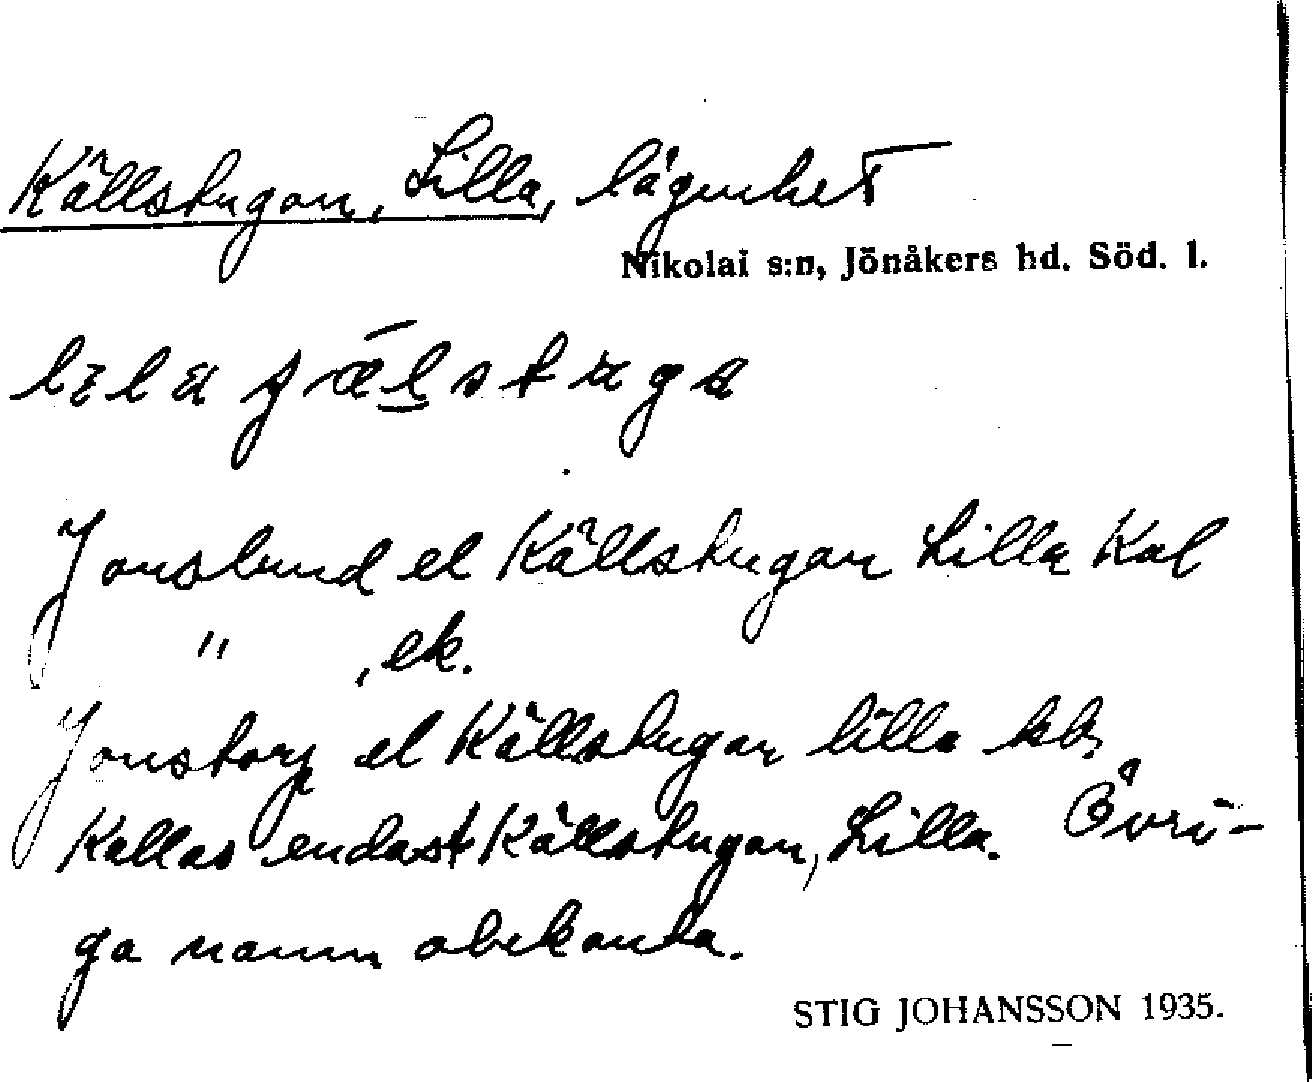 Källstugan, Lilla, lägenhet
Nikolai s:n, Jönåkers hd. Söd. l.
Jonslund el Källstugan Lilla Kal
" , ek.
Jonstorp el Källstugan lilla kb.
Kallas endast Källstugan, Lilla. Övri-
ga namn obekanta.
STIG JOHANSSON 1935.